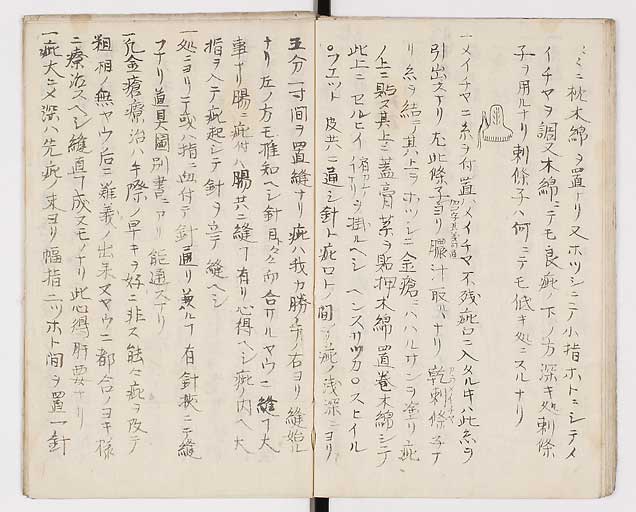 ミニ枕木綿ヲ置ナリ又ホツシニニテ小指ホトニシテイ
イチヤヲ調又木綿ニテモ良疵ノ下ノ方深キ処刺條
子ヲ用ルナリ刺條子ハ何ニテモ低キ処ニスルナリ
一メイチヤニ糸ヲ付置ハメイチヤ不残疵口ニ入タルキハ此糸ヲ
引出スナリ尤此條子ヨリ膿汁ヲ取ルナリ乾刺條子ナ
リ糸ヲ結ヲ其上ニホツシニ金瘡ニハハルサンヲ塗リ疵
ノ上ニ貼ス其上ニ蓋膏薬ヲ貼押木綿置巻木綿シテ
此上ニセルヒイヲ掛ルヘシヘンスカロスヒイル
皮共ニ通シ針ト疵口ト間ヲ疵ノ浅深ニヨリ
五分一寸間ヲ置縫ナリ疵ハ我カ勝手ノ右ヨリ縫始ル
ナリ左ノ方モ准知ヘシ針目々々向合サルヤウニ縫フ大
事ナリ腸ニ疵付ハ腸共ニ縫フ有リ心得ヘシ疵ノ内ヘ大
指ヲ入テ疵起シテ針ヲ立テ縫ヘシ
一処ニヨリテ或ハ指ニ血付テ針通リ兼ルフ有針挾ニテ縫
フナリ道具圖別書ニアリ能通スナリ
一凡金瘡療治ハ手際ノ早キヲ好ニ非ス能々疵ヲ改テ
粗相ノ無ヤウ后ニ難義ノ出来ヌヤウニ都合ノヨキ様
ニ療治スヘシ縫直フ成ヌモノナリ此心得肝要ナリ
一疵大ニメ深ハ先疵ノ末ヨリ幅指二ツホト間ヲ置一針